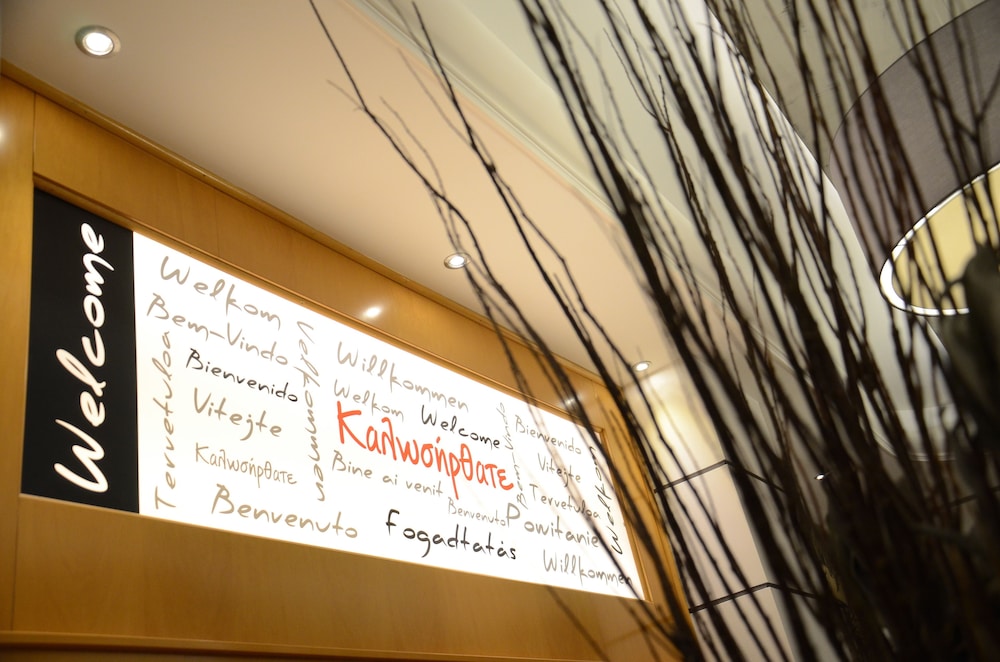 Welcome
Welkom
Bem-Vindo
Bienvenido
Vitejte
Καλωσήρθατε
Tervetuloa
Benvenuto
Velkommen
Willkommen
Welkom
Welcome
Καλωσήρθατε
Bine ai venit
Benvenuto
Fogadtatás
Bienvenido
Vitejte
Tervetuloa
Powitanie
Willkommen